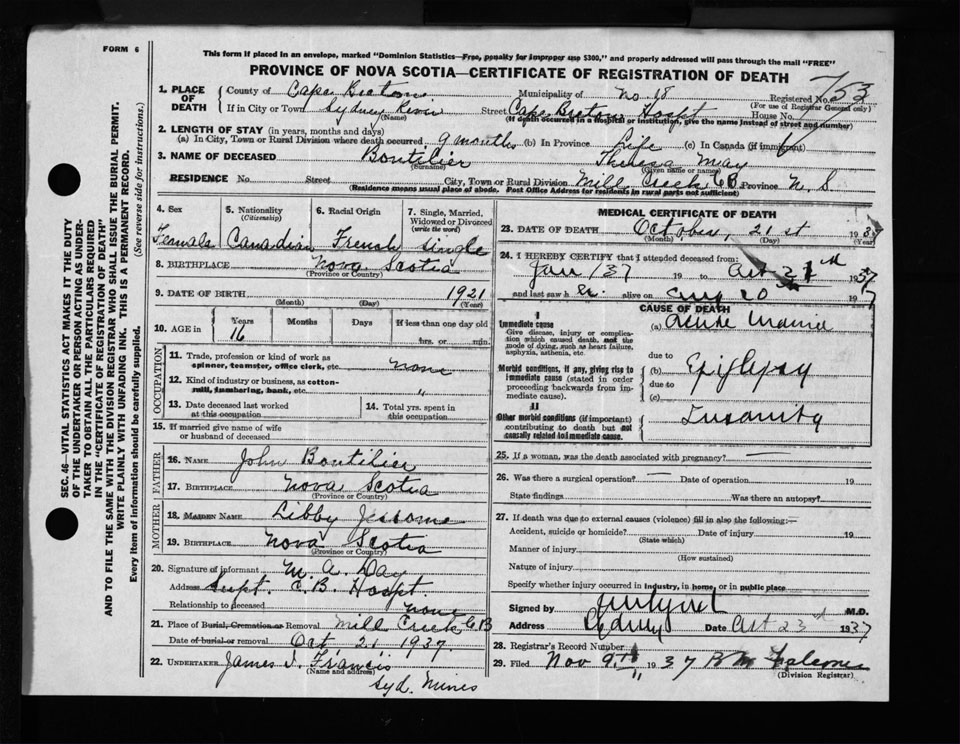 FORM 6
This form if placed in an envelope, marked "Dominion Statistics—Free, penalty for improper use $300," and properly addressed will pass through the mail "FREE"
PROVINCE OF NOVA SCOTIA—CERTIFICATE OF REGISTRATION OF DEATH
753
1. PLACE OF DEATH
County of Cape Breton Municipality of No 18 Registered No.
(For use of Registrar General only)
If in City or Town Sydney River Street Cape Breton Hospt House No.
(Name) (If death occurred in a hospital or institution, give the name instead of street and number)
2. LENGTH OF STAY (in years, months and days)
(a) In City, Town or Rural Division where death occurred 9 months (b) In Province Life (c) In Canada (if immigrant)
3. NAME OF DECEASED Boutilier Theresa May
(Surname) (Given name or names)
RESIDENCE No. Street City, Town or Rural Division Mill Creek CB Province N. S.
(Residence means usual place of abode. Post Office Address for residents in rural parts not sufficient)
4. Sex Female
5. Nationality (Citizenship) Canadian
6. Racial Origin French
7. Single, Married, Widowed or Divorced (write the word) single
8. BIRTHPLACE Nova Scotia
(Province or Country)
9. DATE OF BIRTH 1921
(Month) (Day) (Year)
10. AGE in Years Months Days If less than one day old
16 hrs. or min.
OCCUPATION
11. Trade, profession or kind of work as spinner, teamster, office clerk, etc. none
12. Kind of industry or business, as cotton-mill, lumbering, bank, etc. "
13. Date deceased last worked at this occupation
14. Total yrs. spent in this occupation
15. If married give name of wife or husband of deceased
FATHER
16. NAME John Boutilier
17. BIRTHPLACE Nova Scotia
(Province or Country)
MOTHER
18. MAIDEN NAME Libby Jessome
19. BIRTHPLACE Nova Scotia
(Province or Country)
20. Signature of informant M. A. Day
Address Supt. C.B. Hospt.
Relationship to deceased none
21. Place of Burial, Cremation or Removal Mill Creek C.B
Date of burial or removal Oct 21 1937
22. UNDERTAKER James J. Francis
(Name and address)
Syd. Mines
MEDICAL CERTIFICATE OF DEATH
23. DATE OF DEATH October, 21 st 1937
(Month) (Day) (Year)
24. I HEREBY CERTIFY that I attended deceased from:
Jan / 37 19 to Oct 1937
and last saw h er alive on 20 193 7
CAUSE OF DEATH
I
Immediate cause
Give disease, injury or complication which caused death, not the mode of dying, such as heart failure, asphyxia, asthenia, etc.
(a) Acute Mania
due to
Morbid conditions, if any, giving rise to immediate cause (stated in order proceeding backwards from immediate cause).
(b) Epilepsy
due to
(c)
II
Other morbid conditions (if important) contributing to death but not causally related to immediate cause.
Insanity
25. If a woman, was the death associated with pregnancy? —
26. Was there a surgical operation? — Date of operation 19
State findings Was there an autopsy?
27. If death was due to external causes (violence) fill in also the following:—
Accident, suicide or homicide? Date of injury 19
(State which)
Manner of injury
(How sustained)
Nature of injury
Specify whether injury occurred in industry, in home, or in public place
Signed by M.D.
Address Sydney Date Oct 23rd 1937
28. Registrar's Record Number
29. Filed Nov 9th 1937
(Division Registrar)
SEC. 46—VITAL STATISTICS ACT MAKES IT THE DUTY
OF THE UNDERTAKER OR PERSON ACTING AS UNDERTAKER TO OBTAIN ALL THE PARTICULARS REQUIRED
IN THE "CERTIFICATE OF REGISTRATION OF DEATH"
AND TO FILE THE SAME WITH THE DIVISION REGISTRAR WHO SHALL ISSUE THE BURIAL PERMIT.
WRITE PLAINLY WITH UNFADING INK. THIS IS A PERMANENT RECORD.
Every item of information should be carefully supplied. (See reverse side for instructions.)